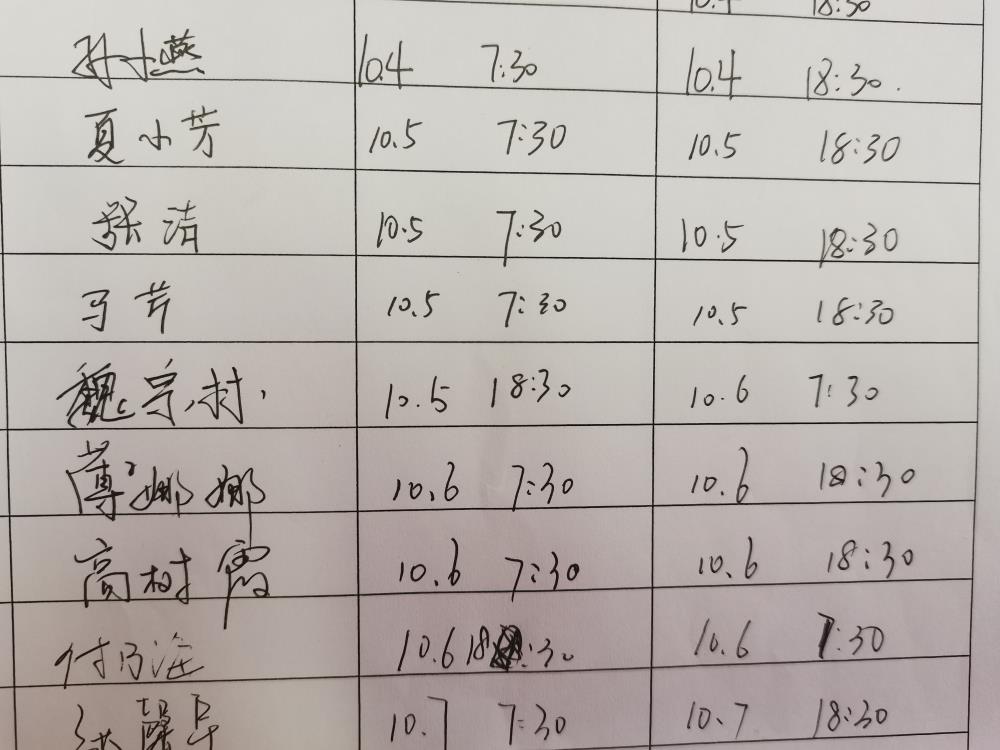 10.4 18:30
孙小燕 10.4 7:30 10.4 18:30.
夏小芳 10.5 7:30 10.5 18:30
张洁 10.5 7:30 10.5 18:30
马芹 10.5 7:30 10.5 18:30
魏宗村 10.5 18:30 10.6 7:30
薄娜娜 10.6 7:30 10.6 18:30
高树霞 10.6 7:30 10.6 18:30
付乃海 10.6 18:30 10.6 7:30
10.7 7:30 10.7 18:30